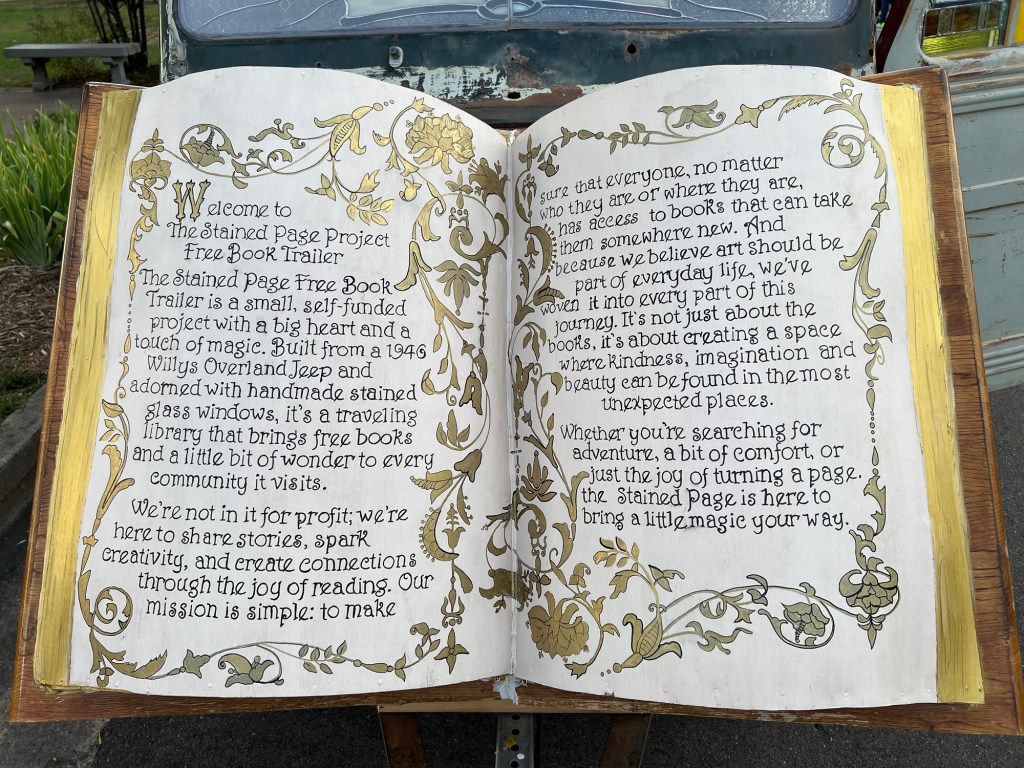 Welcome to
The Stained Page Project
Free Book Trailer
The Stained Page Free Book
Trailer is a small, self-funded
project with a big heart and a
touch of magic. Built from a 1946
Willys Overland Jeep and
adorned with handmade stained
glass windows, it's a traveling
library that brings free books
and a little bit of wonder to every
community it visits.
We're not in it for profit; we're
here to share stories, spark
creativity, and create connections
through the joy of reading. Our
mission is simple: to make
sure that everyone, no matter
who they are or where they are,
has access to books that can take
them somewhere new. And
because we believe art should be
part of everyday life, we've
woven it into every part of this
journey. It's not just about the
books, it's about creating a space
where kindness, imagination and
beauty can be found in the most
unexpected places.
Whether you're searching for
adventure, a bit of comfort, or
just the joy of turning a page.
the Stained Page is here to
bring a little magic your way.